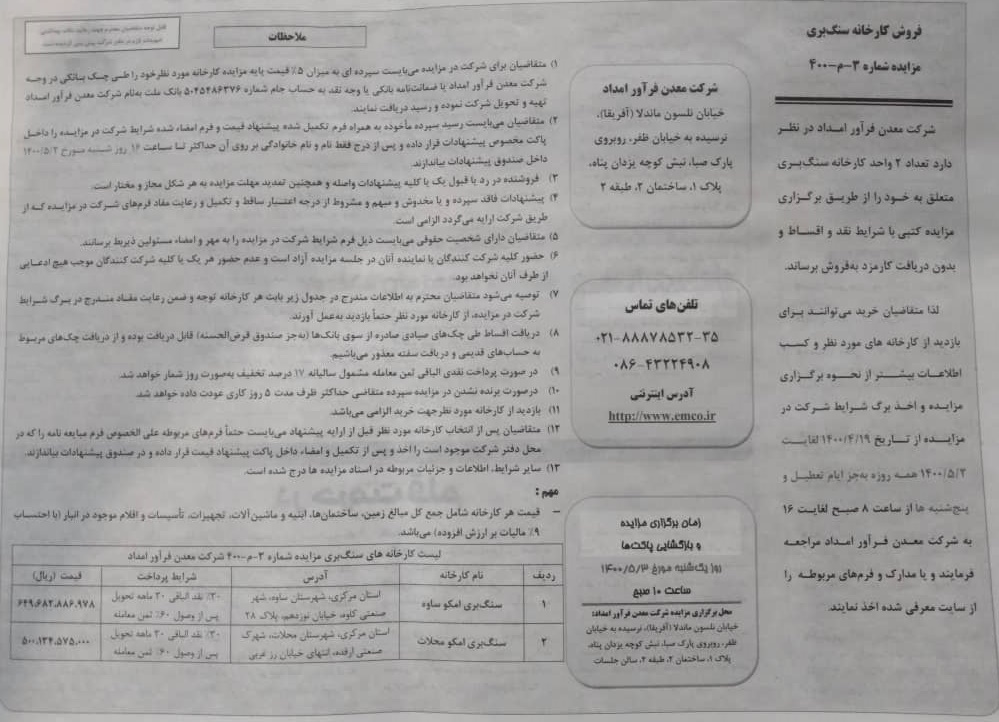 فروش کارخانه سنگ‌بری
مزایده شماره ۳-م-۴۰۰
شرکت معدن فرآور امداد در نظر
دارد تعداد ۲ واحد کارخانه سنگ‌بری
متعلق به خود را از طریق برگزاری
مزایده کتبی با شرایط نقد و اقساط و
بدون دریافت کارمزد به‌فروش برساند.
لذا متقاضیان خرید می‌توانند برای
بازدید از کارخانه های مورد نظر و کسب
اطلاعات بیشتر از نحوه برگزاری
مزایده و اخذ برگ شرایط شرکت در
مزایده از تاریخ ۱۴۰۰/۴/۱۹ لغایت
۱۴۰۰/۵/۲ همه روزه به‌جز ایام تعطیل و
پنج‌شنبه ها از ساعت ۸ صبح لغایت ۱۶
به شرکت معدن فرآور امداد مراجعه
فرمایند و یا مدارک و فرم‌های مربوطه را
از سایت معرفی شده اخذ نمایند.
شرکت معدن فرآور امداد
خیابان نلسون ماندلا (آفریقا)،
نرسیده به خیابان ظفر، روبروی
پارک صبا، نبش کوچه یزدان پناه،
پلاک ۱، ساختمان ۲، طبقه ۲
تلفن‌های تماس
۰۲۱-۸۸۸۷۸۵۳۲-۳۵
۰۸۶-۴۳۲۲۴۹۰۸
آدرس اینترنتی
http://www.emco.ir
زمان برگزاری مزایده
و بازگشایی پاکت‌ها
روز یک‌شنبه مورخ ۱۴۰۰/۵/۳
ساعت ۱۰ صبح
محل برگزاری مزایده شرکت معدن فرآور امداد:
خیابان نلسون ماندلا (آفریقا)، نرسیده به خیابان
ظفر، روبروی پارک صبا، نبش کوچه یزدان پناه،
پلاک ۱، ساختمان ۲، طبقه ۲، سالن جلسات
ملاحظات
۱) متقاضیان برای شرکت در مزایده می‌بایست سپرده ای به میزان ۵٪ قیمت پایه مزایده کارخانه مورد نظر خود را طی چک بانکی در وجه
شرکت معدن فرآور امداد یا ضمانت‌نامه بانکی یا وجه نقد به حساب جام شماره ۵۰۴۵۴۸۶۳۷۶ بانک ملت به‌نام شرکت معدن فرآور امداد
تهیه و تحویل شرکت نموده و رسید دریافت نمایند.
۲) متقاضیان می‌بایست رسید سپرده مأخوذه به همراه فرم تکمیل شده پیشنهاد قیمت و فرم امضاء شده شرایط شرکت در مزایده را داخل
پاکت مخصوص پیشنهادات قرار داده و پس از درج فقط نام و نام خانوادگی بر روی آن حداکثر تا ساعت ۱۶ روز شنبه مورخ ۱۴۰۰/۵/۲
داخل صندوق پیشنهادات بیاندازند.
۳) فروشنده در رد یا قبول یک یا کلیه پیشنهادات واصله و همچنین تمدید مهلت مزایده به هر شکل مجاز و مختار است.
۴) پیشنهادات فاقد سپرده و یا مخدوش و مبهم و مشروط از درجه اعتبار ساقط و تکمیل و رعایت مفاد فرم‌های شرکت در مزایده که از
طریق شرکت ارایه می‌گردد الزامی است.
۵) متقاضیان دارای شخصیت حقوقی می‌بایست ذیل فرم شرایط شرکت در مزایده را به مهر و امضاء مسئولین ذیربط برسانند.
۶) حضور کلیه شرکت کنندگان یا نماینده آنان در جلسه مزایده آزاد است و عدم حضور هر یک یا کلیه شرکت کنندگان موجب هیچ ادعایی
از طرف آنان نخواهد بود.
۷) توصیه می‌شود متقاضیان محترم به اطلاعات مندرج در جدول زیر بابت هر کارخانه توجه و ضمن رعایت مفاد مندرج در برگ شرایط
شرکت در مزایده، از کارخانه مورد نظر حتماً بازدید به‌عمل آورند.
۸) دریافت اقساط طی چک‌های صیادی صادره از سوی بانک‌ها (به‌جز صندوق قرض‌الحسنه) قابل دریافت بوده و از دریافت چک‌های مربوط
به حساب‌های قدیمی و دریافت سفته معذور می‌باشیم.
۹) در صورت پرداخت نقدی الباقی ثمن معامله مشمول سالیانه ۱۷ درصد تخفیف به‌صورت روز شمار خواهد شد.
۱۰) درصورت برنده نشدن در مزایده سپرده متقاضی حداکثر ظرف مدت ۵ روز کاری عودت داده خواهد شد.
۱۱) بازدید از کارخانه مورد نظر جهت خرید الزامی می‌باشد.
۱۲) متقاضیان پس از انتخاب کارخانه مورد نظر قبل از ارایه پیشنهاد می‌بایست حتماً فرم‌های مربوطه علی الخصوص فرم مبایعه نامه را که در
محل دفتر شرکت موجود است را اخذ و پس از تکمیل و امضاء داخل پاکت پیشنهاد قیمت قرار داده و در صندوق پیشنهادات بیاندازند.
۱۳) سایر شرایط، اطلاعات و جزئیات مربوطه در اسناد مزایده ها درج شده است.
مهم :
– قیمت هر کارخانه شامل جمع کل مبالغ زمین، ساختمان‌ها، ابنیه و ماشین‌آلات، تجهیزات، تأسیسات و اقلام موجود در انبار (با احتساب
۹٪ مالیات بر ارزش افزوده) می‌باشد.
لیست کارخانه های سنگ‌بری مزایده شماره ۳-م-۴۰۰ شرکت معدن فرآور امداد
ردیف نام کارخانه آدرس شرایط پرداخت قیمت (ریال)
۱ سنگ‌بری امکو ساوه استان مرکزی، شهرستان ساوه، شهر صنعتی کاوه، خیابان نوزدهم، پلاک ۲۸ ۳۰٪ نقد الباقی ۳۰ ماهه تحویل پس از وصول ۶۰٪ ثمن معامله ۶۴۹،۶۸۲،۸۸۶،۹۷۸
۲ سنگ‌بری امکو محلات استان مرکزی، شهرستان محلات، شهرک صنعتی ارقده، انتهای خیابان رز غربی ۳۰٪ نقد الباقی ۳۰ ماهه تحویل پس از وصول ۶۰٪ ثمن معامله ۵۰۰،۱۳۴،۵۷۵،۰۰۰